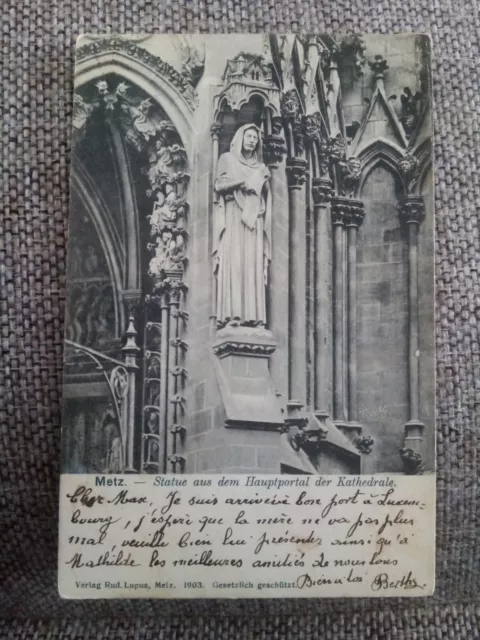 Metz. Statue aus dem Hauptportal der Kathedrale.
Cher Max, Je suis arrivéé bon port à Luxem-
bourg, j'espère que la mère ne va pas plus
mal, veuille bien lui présenter ainsi qu'à
Mathilde les meilleures amitiés de nous tous
Bien à toi Berthe
Verlag Rud. Lupus, Metz. 1903. Gesetzlich geschützt.